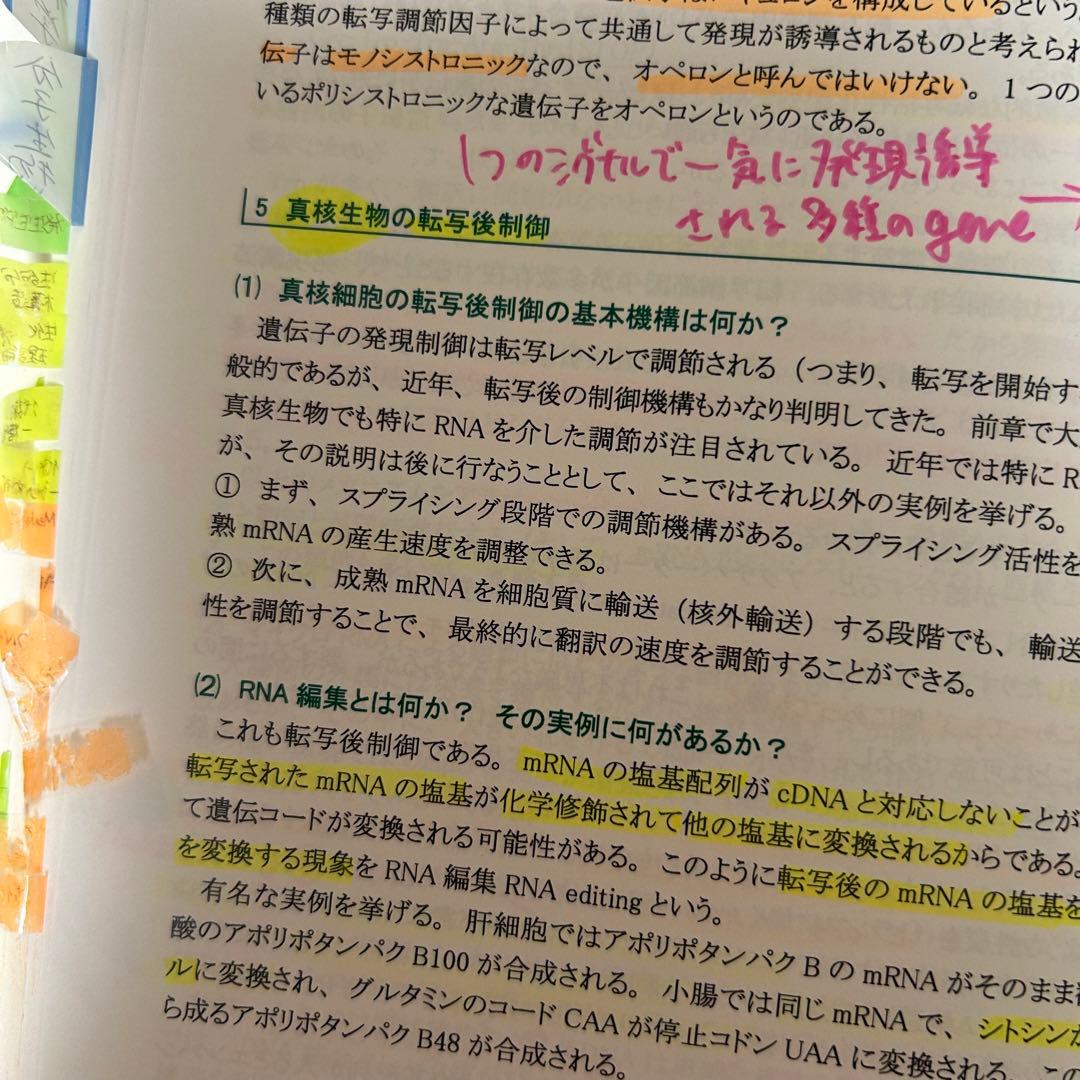 を構成しているという
種類の転写調節因子によって共通して発現が誘導されるものと考えられ
伝子はモノシストロニックなので、オペロンと呼んではいけない。1つの
いるポリシストロニックな遺伝子をオペロンというのである。
1つのシグナルで一気に発現誘導
される多種のgene→
5 真核生物の転写後制御
(1) 真核細胞の転写後制御の基本機構は何か？
遺伝子の発現制御は転写レベルで調節される（つまり、転写を開始す
般的であるが、近年、転写後の制御機構もかなり判明してきた。前章で大
真核生物でも特に RNA を介した調節が注目されている。近年では特に R
が、その説明は後に行なうこととして、ここではそれ以外の実例を挙げる。
① まず、スプライシング段階での調節機構がある。スプライシング活性を
熟 mRNA の産生速度を調整できる。
② 次に、成熟 mRNA を細胞質に輸送（核外輸送）する段階でも、輸送
性を調節することで、最終的に翻訳の速度を調節することができる。
(2) RNA 編集とは何か？ その実例に何があるか？
これも転写後制御である。mRNA の塩基配列が cDNA と対応しないことが
転写された mRNA の塩基が化学修飾されて他の塩基に変換されるからである。
て遺伝コードが変換される可能性がある。このように転写後の mRNA の塩基を
を変換する現象を RNA 編集 RNA editing という。
有名な実例を挙げる。肝細胞ではアポリポタンパク B の mRNA がそのまま
酸のアポリポタンパク B100 が合成される。小腸では同じ mRNA で、シトシンが
ルに変換され、グルタミンのコード CAA が停止コドン UAA に変換される。この
ら成るアポリポタンパク B48 が合成される。